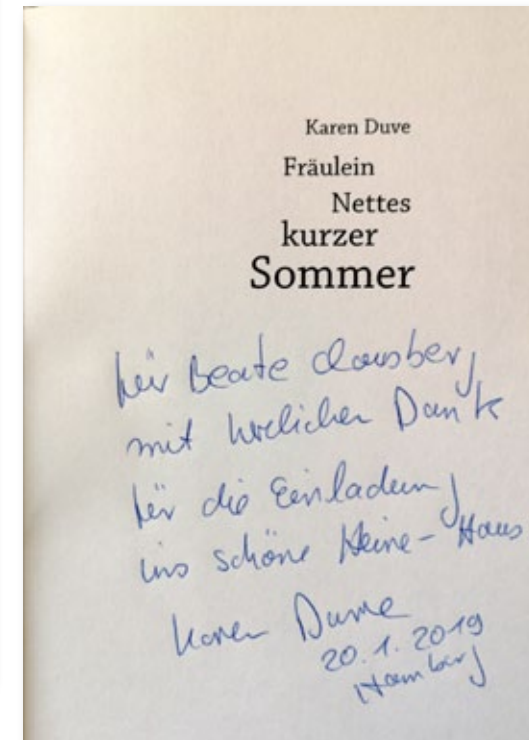 Karen Duve
Fräulein
Nettes
kurzer
Sommer
für Beate Clausberg
mit herzlichen Dank
für die Einladung
ins schöne Heine-Haus
Karen Duve
20.1.2019
Hamburg